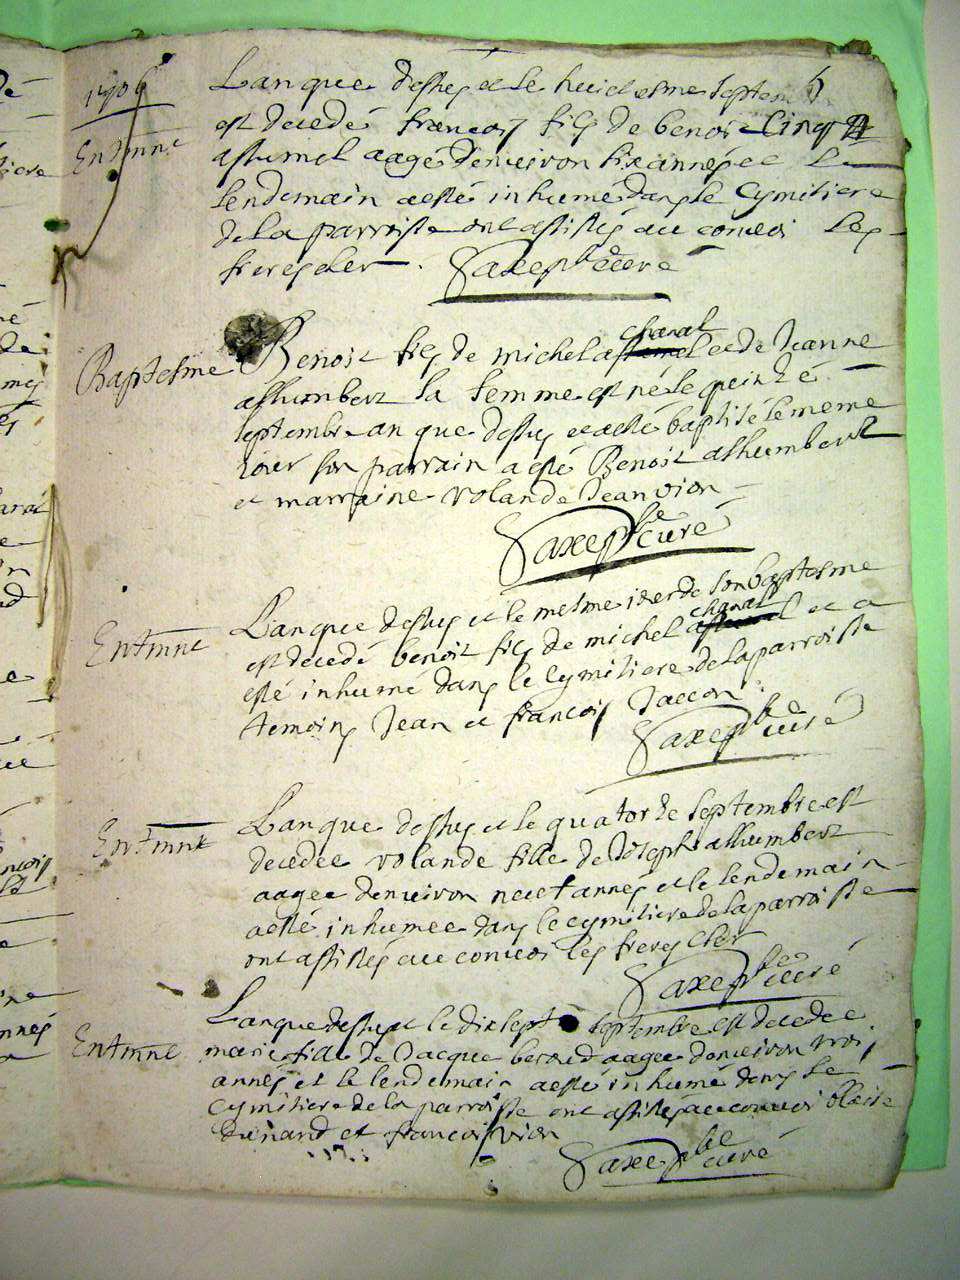 1706
Lan que dessus et le huictesme septem
Entmnt
est decedé francois fils de benoist
aagé denviron six années et Le
lendemain a esté inhumé dans le Cymitiere
de La parroisse ont assistés au convoi Les
freres cler Saxe pbre curé
Baptesme
Benoit fils de michel chanal et de Jeanne
alhumbert sa femme est né le
septembre an que dessus et a esté baptisé le meme
iour son parrain a esté Benoit alhumbert
et marraine volande Jean vion
Saxe pbre curé
Entmnt
Lan que dessus et le mesme iour de son baptesme
est decedé benoit fils de michel chanal et a
esté inhumé dans le Cymitiere de la parroisse
temoins Jean et francois Jaccon
Saxe pbre curé
Entmnt
Lan que dessus et le quatorze septembre est
decedee volande fille de Joseph alhumbert
aagee denviron neuf annés et le lendemain
a esté inhumee dans le cymitiere de la parroisse
ont assistés au convoi les freres Cler
Saxe pbre curé
Lan que dessus et le dix sept septembre est decedee
Entmnt
marie fille de Jacque beroud aagee denviron trois
annés et le lendemain a esté inhumé dans Le
cymitiere de la parroisse ont assistés au convoi blaise
dunand et francois vion
Saxe pbre curé